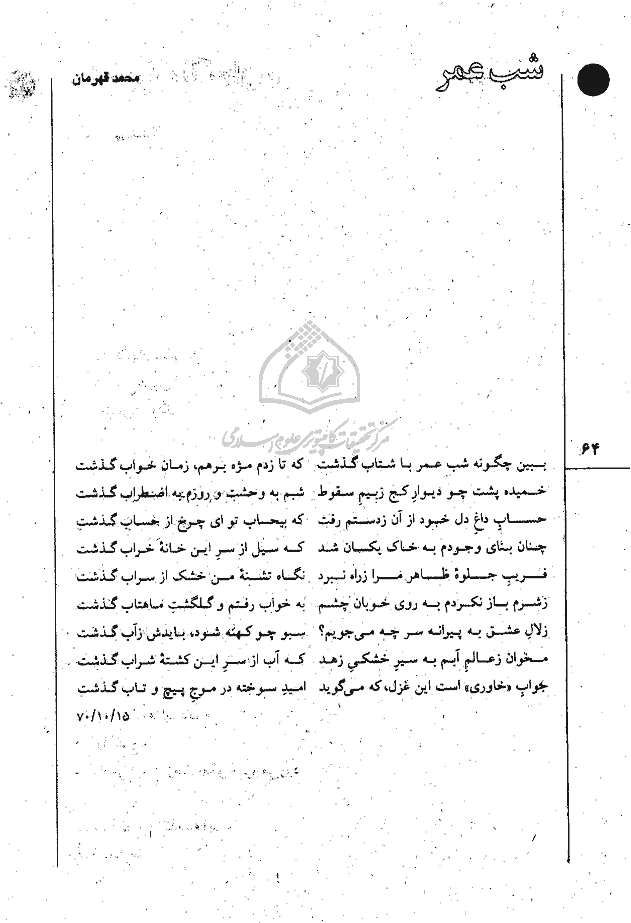 شب عمر
محمد قهرمان
مرکز تحقیقات کامپیوتری علوم اسلامی
۶۴
ببین چگونه شب عمر با شتاب گذشت که تا زدم مژه برهم، زمان خواب گذشت
خمیده پشت چو دیوار کج زبیم سقوط شبم به وحشت و روزم به اضطراب گذشت
حساب داغ دل خود از آن زدستم رفت که بیحساب تو ای چرخ از حساب گذشت
چنان بنای وجودم به خاک یکسان شد که سیل از سر این خانهٔ خراب گذشت
فریب جلوهٔ ظاهر مرا زراه نبرد نگاه تشنهٔ من خشک از سراب گذشت
زشرم باز نکردم به روی خوبان چشم به خواب رفتم و گلگشت ماهتاب گذشت
زلال عشق به پیرانه سر چه می‌جویم؟ سبو چو کهنه شود، بایدش زآب گذشت
مخوان زعالم آبم به سیر خشکی زهد که آب از سر این کشتهٔ شراب گذشت
جواب «خاوری» است این غزل، که می‌گوید امید سوخته در موج پیچ و تاب گذشت
۷۰/۱۰/۱۵